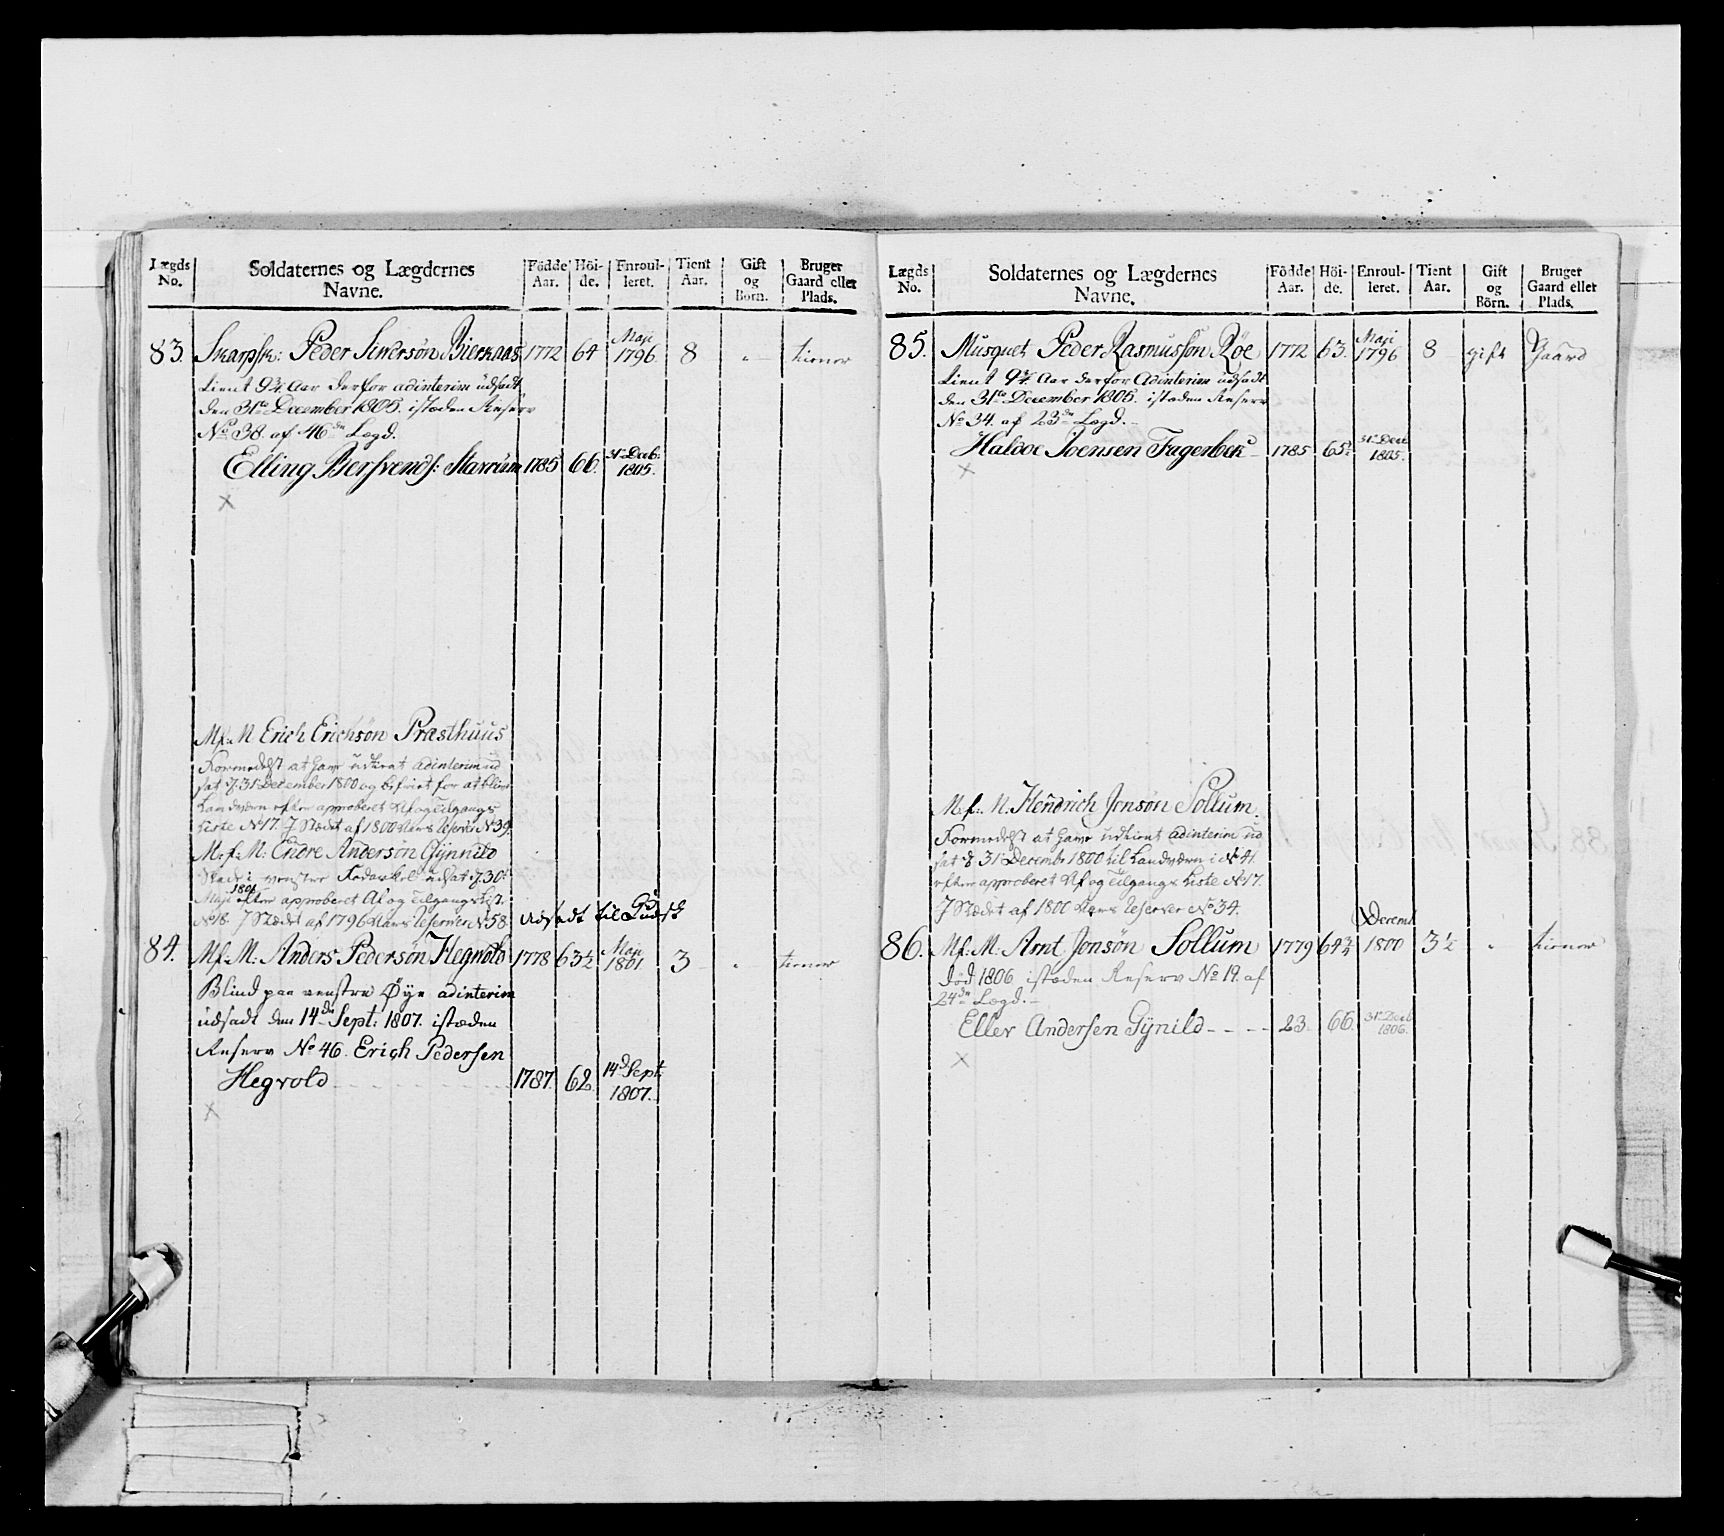 Lægds No. Soldaternes og Lægdernes Navne. Födde Aar. Höi- de. Enroul- leret. Tient Aar. Gift og Börn. Bruger Gaard eller Plads.
83 Skarpsk: Peder Siversön Bierkaas 1772 64 Maji 1796 8 " tiener
tient 9¾ Aar derfor adinterim udsadt
den 31te December 1805. istæden Reserv
No 38. af 46de Lægd.
Elling Bersvends: Starrum 1785 66. 31te Decb: 1805.
M.f: M. Erich Erichsön Præsthuus
Formedelst at have udtient adinterim ud
sat d. 31 December 1800 og befriet for at blive
Landværn efter approberet Af og Tilgangs
Liste No 17. J Stædet af 1800 Aars Reserver No 39.
M.f: M: Endre Andersön Gynnild
Skade i venstre udsat d. 30te
Maji 1801 efter approberet Af og Tilgangs List.
No 18 J Stædet af 1796 Aars Reserver No 58. Udsadt til
84. M.f: M: Anders Pedersön Hegvold 1778 63½ Maji 1801. 3 " tiener
Blind paa venstre Øye adinterim
udsadt den 14de Sept: 1807. istæden
Reserv No 46. Erich Pedersen
Hegvold 1787. 62. 14d Sept. 1807.
Lægds No. Soldaternes og Lægdernes Navne. Födde Aar. Höi- de. Enroul- leret. Tient Aar. Gift og Börn. Bruger Gaard eller Plads.
85. Musquet Peder Rasmussön Röe 1772 63. Maji 1796 8 gift Gaard
tient 9¾ Aar derfor Adinterim udsadt
den 31te December 1805. istæden Reserv
No 34. af 23de Lægd.
Haldoe Joensen Fagerbek 1785 65½ 31te Decb 1805.
M.f: M. Hendrich Jonsön Sollum.
Formedelst at have udtient adinterim ud
sat d. 31 December 1800 til Landværn i No 41.
efter approberet Af og Tilgangs Liste No 17.
J Stædet af 1800 Aars Reserver No 34.
86. M.f: M: Arnt Jonsön Sollum 1779 64¾ Decemb 1800 3½ " tiener
död 1806 istæden Reserv No 19. af
24de Lægd.
Eller Andersen Gynild 23. 66. 31te Decb 1806.